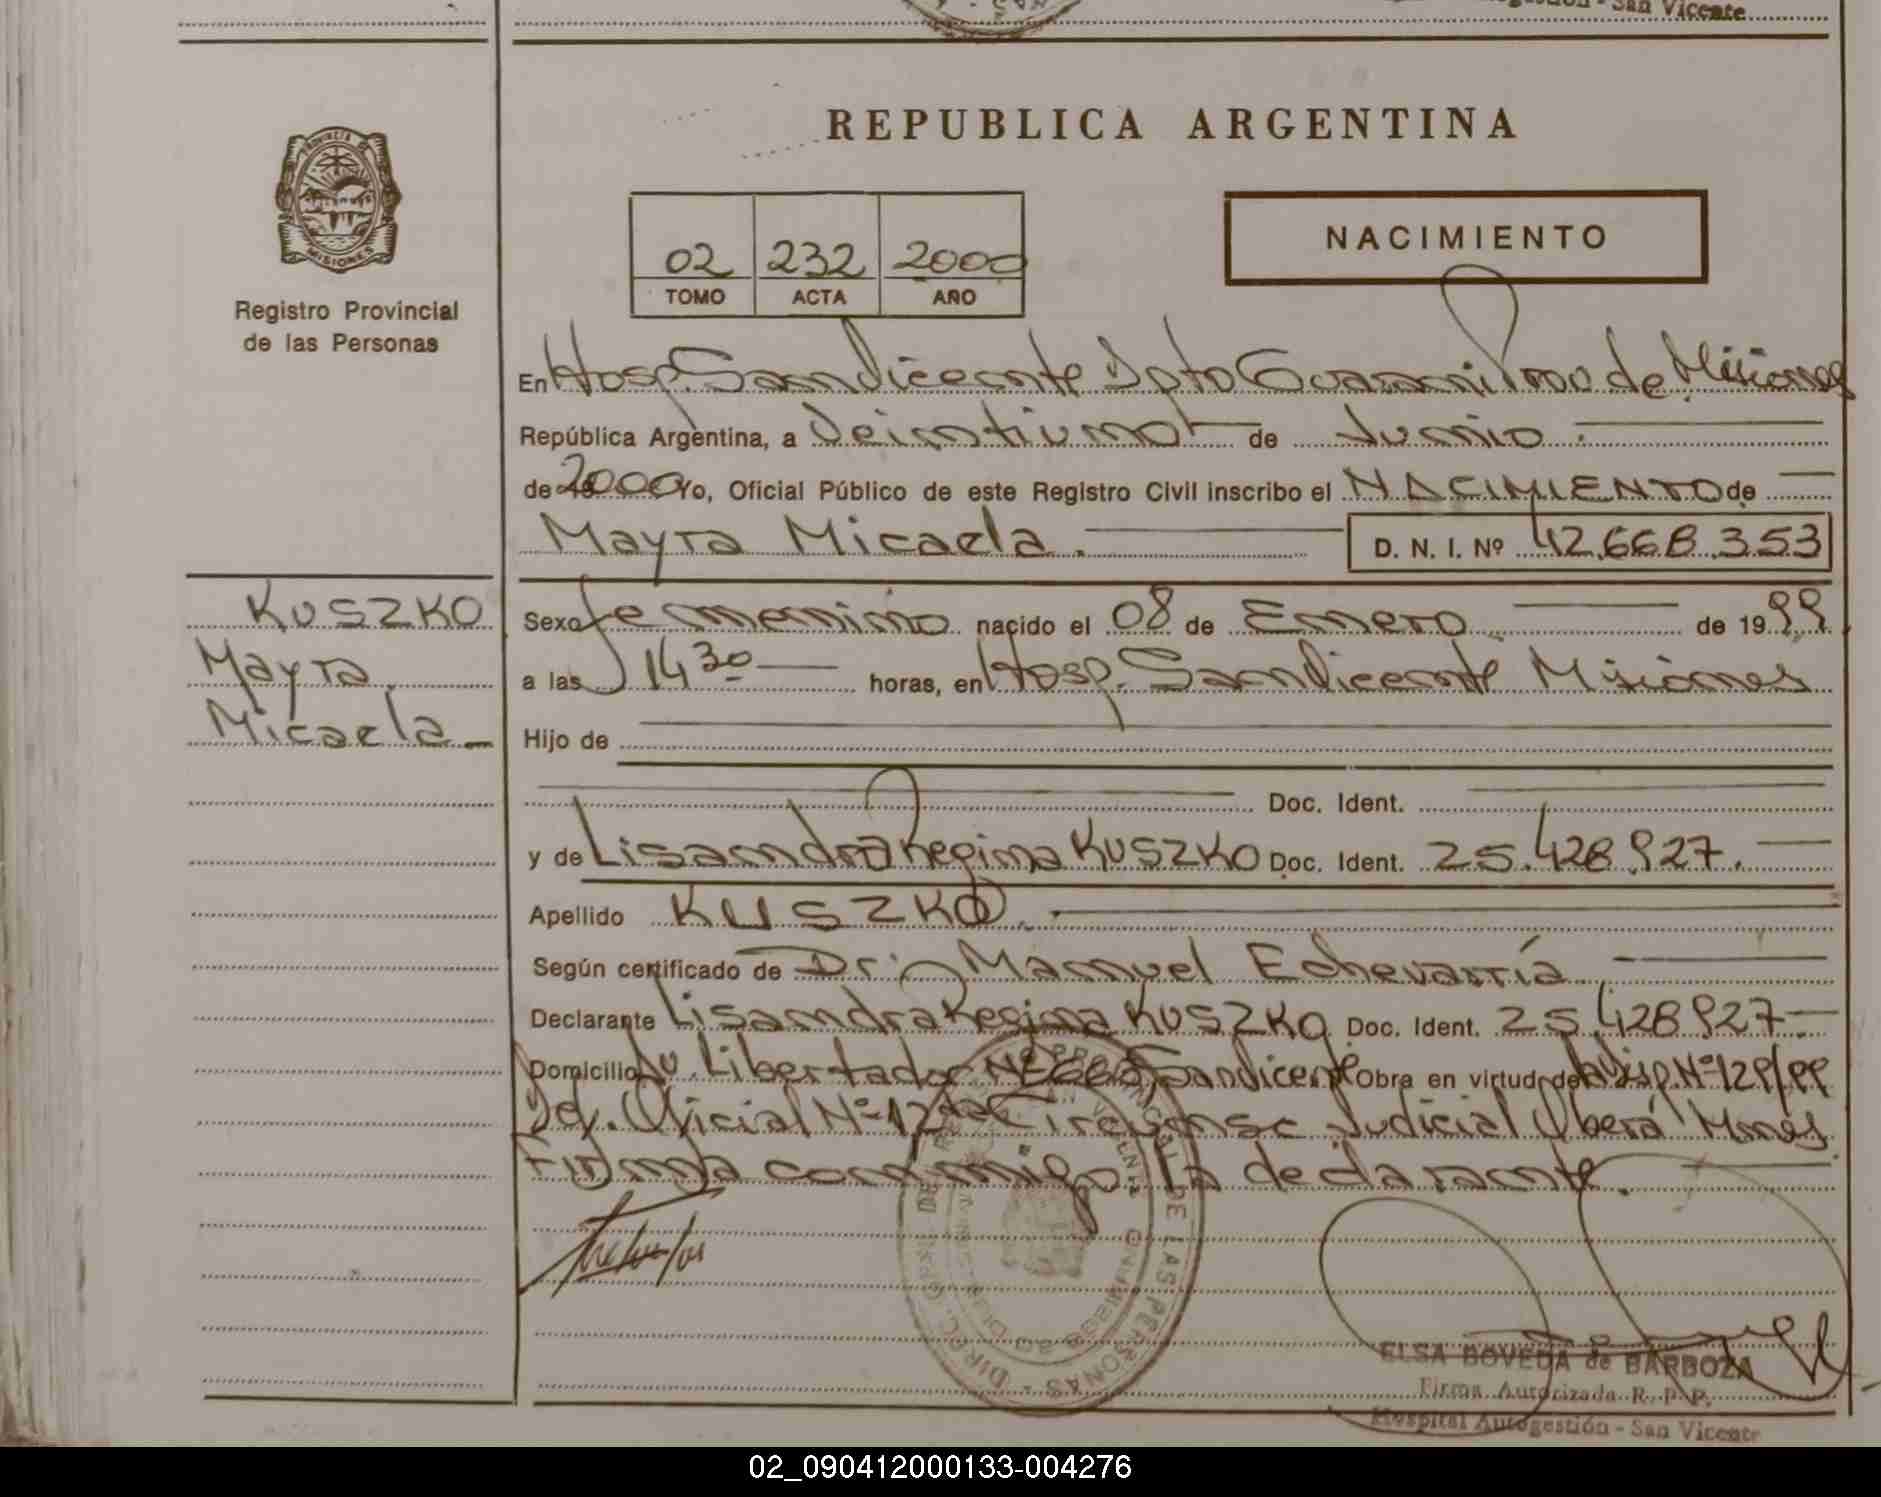 San Vicente
REPUBLICA ARGENTINA
PROVINCIA DE
MISIONES
Registro Provincial
de las Personas
02 232 2000
TOMO ACTA AÑO
NACIMIENTO
En Hosp. San Vicente Dpto Guaraní Prov de Misiones
República Argentina, a Veintiuno de Junio
de 2000 Yo, Oficial Público de este Registro Civil inscribo el NACIMIENTO de
Mayra Micaela. D. N. I. Nº 42.668.353
KUSZKO
Mayra
Micaela
Sexo femenino nacido el 08 de Enero de 1999
a las 14 30 horas, en Hosp. San Vicente Misiones
Hijo de
Doc. Ident.
y de Lisandra Regina KUSZKO Doc. Ident. 25.428.927.
Apellido KUSZKO.
Según certificado de Dr. Manuel Echevarría
Declarante Lisandra Regina KUSZKO Doc. Ident. 25.428927
Domicilio Av. Libertador Nº San Vicente Obra en virtud de Disp. Nº 129/99
Def. Oficial Nº 1 2da Circunsc Judicial Oberá Mnes
Firma conmigo la declarante.
DE LAS PERSONAS
ELSA BOVEDA de BARBOZA
Firma Autorizada R. P. P.
Hospital Autogestión - San Vicente
02_090412000133-004276